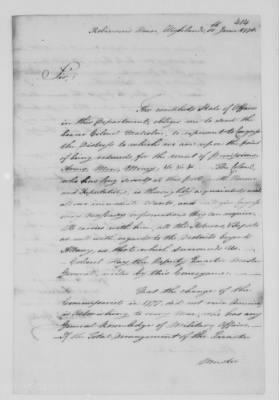 414
Robinsons House, Highlands 10th June 1778.
Sir,
The wretched State of Affairs
in this Department, obliges me to send the
bearer Colonel Malcolm, to represent to Congress
the Distress to which we are upon the point
of being reduced for the want of Provisions
Arms, Men, Money, &c &c. The Colonel
who has long served at this post, with Honour
and Reputation, is thoroughly acquainted with
all our immediate Wants, and will give Congress
every necessary information they can require.
He carries with him, all the Returns & Reports
as well with regard to the Districts beyond
Albany, as that which surrounds Us.
Colonel Hay the Deputy Quarter Master
General, writes by this Conveyance.
That the change of the
Commissariat in 1777, did not ruin America
is astonishing to every Man, who has any
general Knowledge of Military Affairs.
If the Total Management of the Quarter
Master